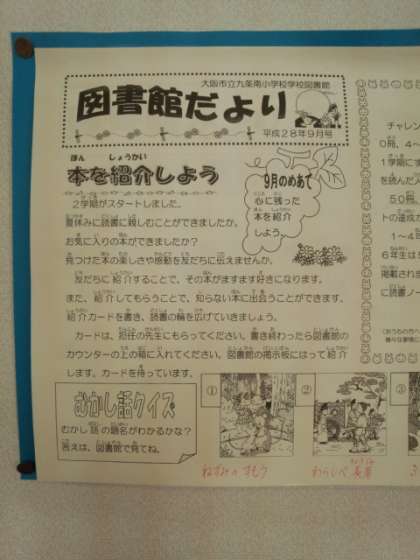 大阪市立九条南小学校学校図書館
図書館だより
平成28年9月号
ほん しょうかい
本を紹介しよう
9月のめあて
心に残った
本を紹介
しよう
2学期がスタートしました。
夏休みに読書に親しむことができましたか。
お気に入りの本ができましたか?
見つけた本の楽しさや感動を友だちに伝えませんか。
友だちに紹介することで、その本がますます好きになります。
また、紹介してもらうことで、知らない本に出会うことができます。
紹介カードを書き、読書の輪を広げていきましょう。
カードは、担任の先生にもらってください。書き終わったら図書館の
カウンターの上の箱に入れてください。図書館の掲示板にはって紹介
します。カードを待っています。
むかし話クイズ
むかし話の題名がわかるかな?
答えは、図書館で見てね。
①
②
ねずみのすもう
わらしべ長者
チャレン
0冊、4~
1学期にす
を読んだ人
50冊、
トの達成
1~4
6年生は
掲載されま
に読書ノー